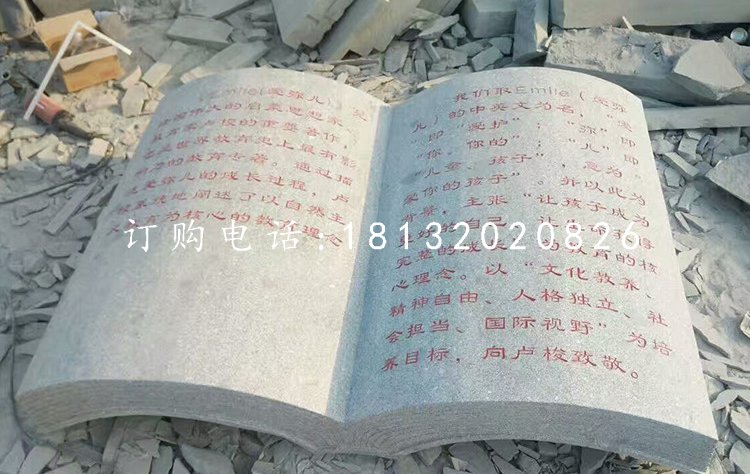 Emile(爱弥儿)是
法国伟大的启蒙思想家
教育家卢梭的重要著作,
也是世界教育史上最有影
响力的教育专著。通过描
述爱弥儿的成长过程,卢
梭系统地阐述了以自然主
义教育为核心的教育理念
我们取Emile(爱弥
儿)的中英文为名,"爱
"即"爱护";"弥"即
"你、你的";"儿"即
"儿童、孩子",意为"
爱你的孩子"。并以此为
背景,主张"让孩子成为
自己,让生命
完整的成 为教育的核
心理念。以"文化教养、
精神自由、人格独立、社
会担当、国际视野"为培
养目标,向卢梭致敬。
订购电话:18132020826